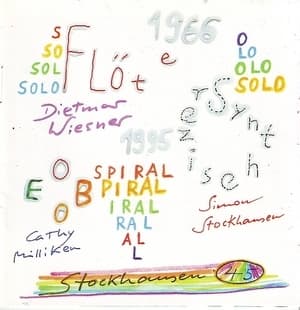 1966
S
SO
SOL
SOLO
Flöte
O
LO
OLO
SOLO
Dietmar
Wiesner
Synthesizer
1995
OBOE
SPIRAL
PIRAL
IRAL
RAL
AL
L
Cathy
Milliken
Simon
Stockhausen
Stockhausen 45